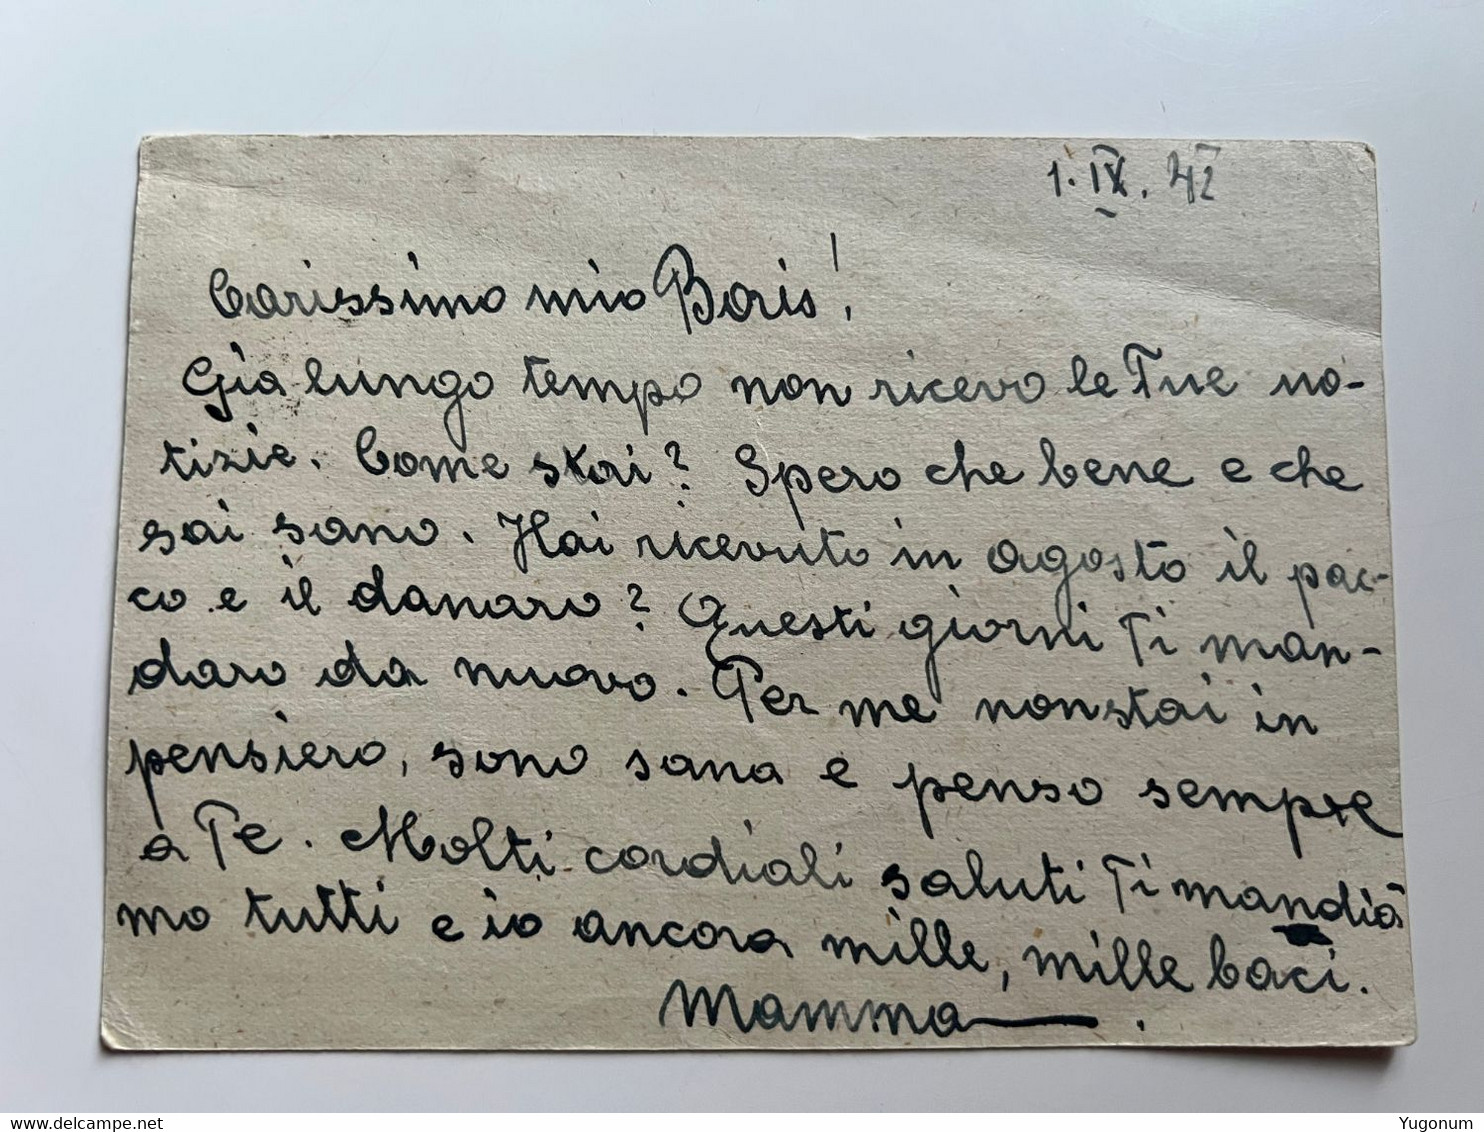 1. IX. 42
Carissimo mio Boris!
Già lungo tempo non ricevo le Tue no-
tizie. Come stai? Spero che bene e che
sai sano. Hai ricevuto in agosto il pac-
co e il danaro? Questi giorni Ti man-
daro da nuovo. Per me non stai in
pensiero, sono sana e penso sempre
a Te. Molti cordiali saluti Ti mandia
mo tutti e io ancora mille, mille baci.
Mamma.
delcampe.net
Yugonum